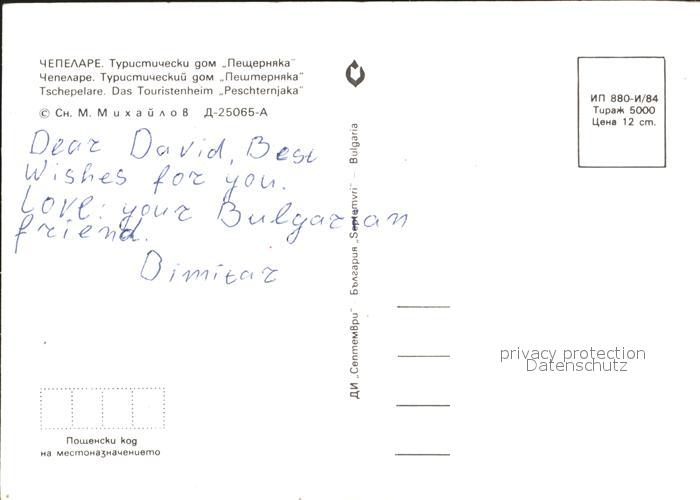 ЧЕПЕЛАРЕ. Туристически дом „Пещерняка“
Чепеларе. Туристический дом „Пештерняка“
Tschepelare. Das Touristenheim „Peschternjaka“
© Сн. М. Михайлов Д-25065-А
Dear David, Best
Wishes for you.
Love: your Bulgarian
friend.
Dimitar
Пощенски код
на местоназначението
ДИ „Септември“ – България „Septemvri“ – Bulgaria
ИП 880-И/84
Тираж 5000
Цена 12 ст.
privacy protection
Datenschutz